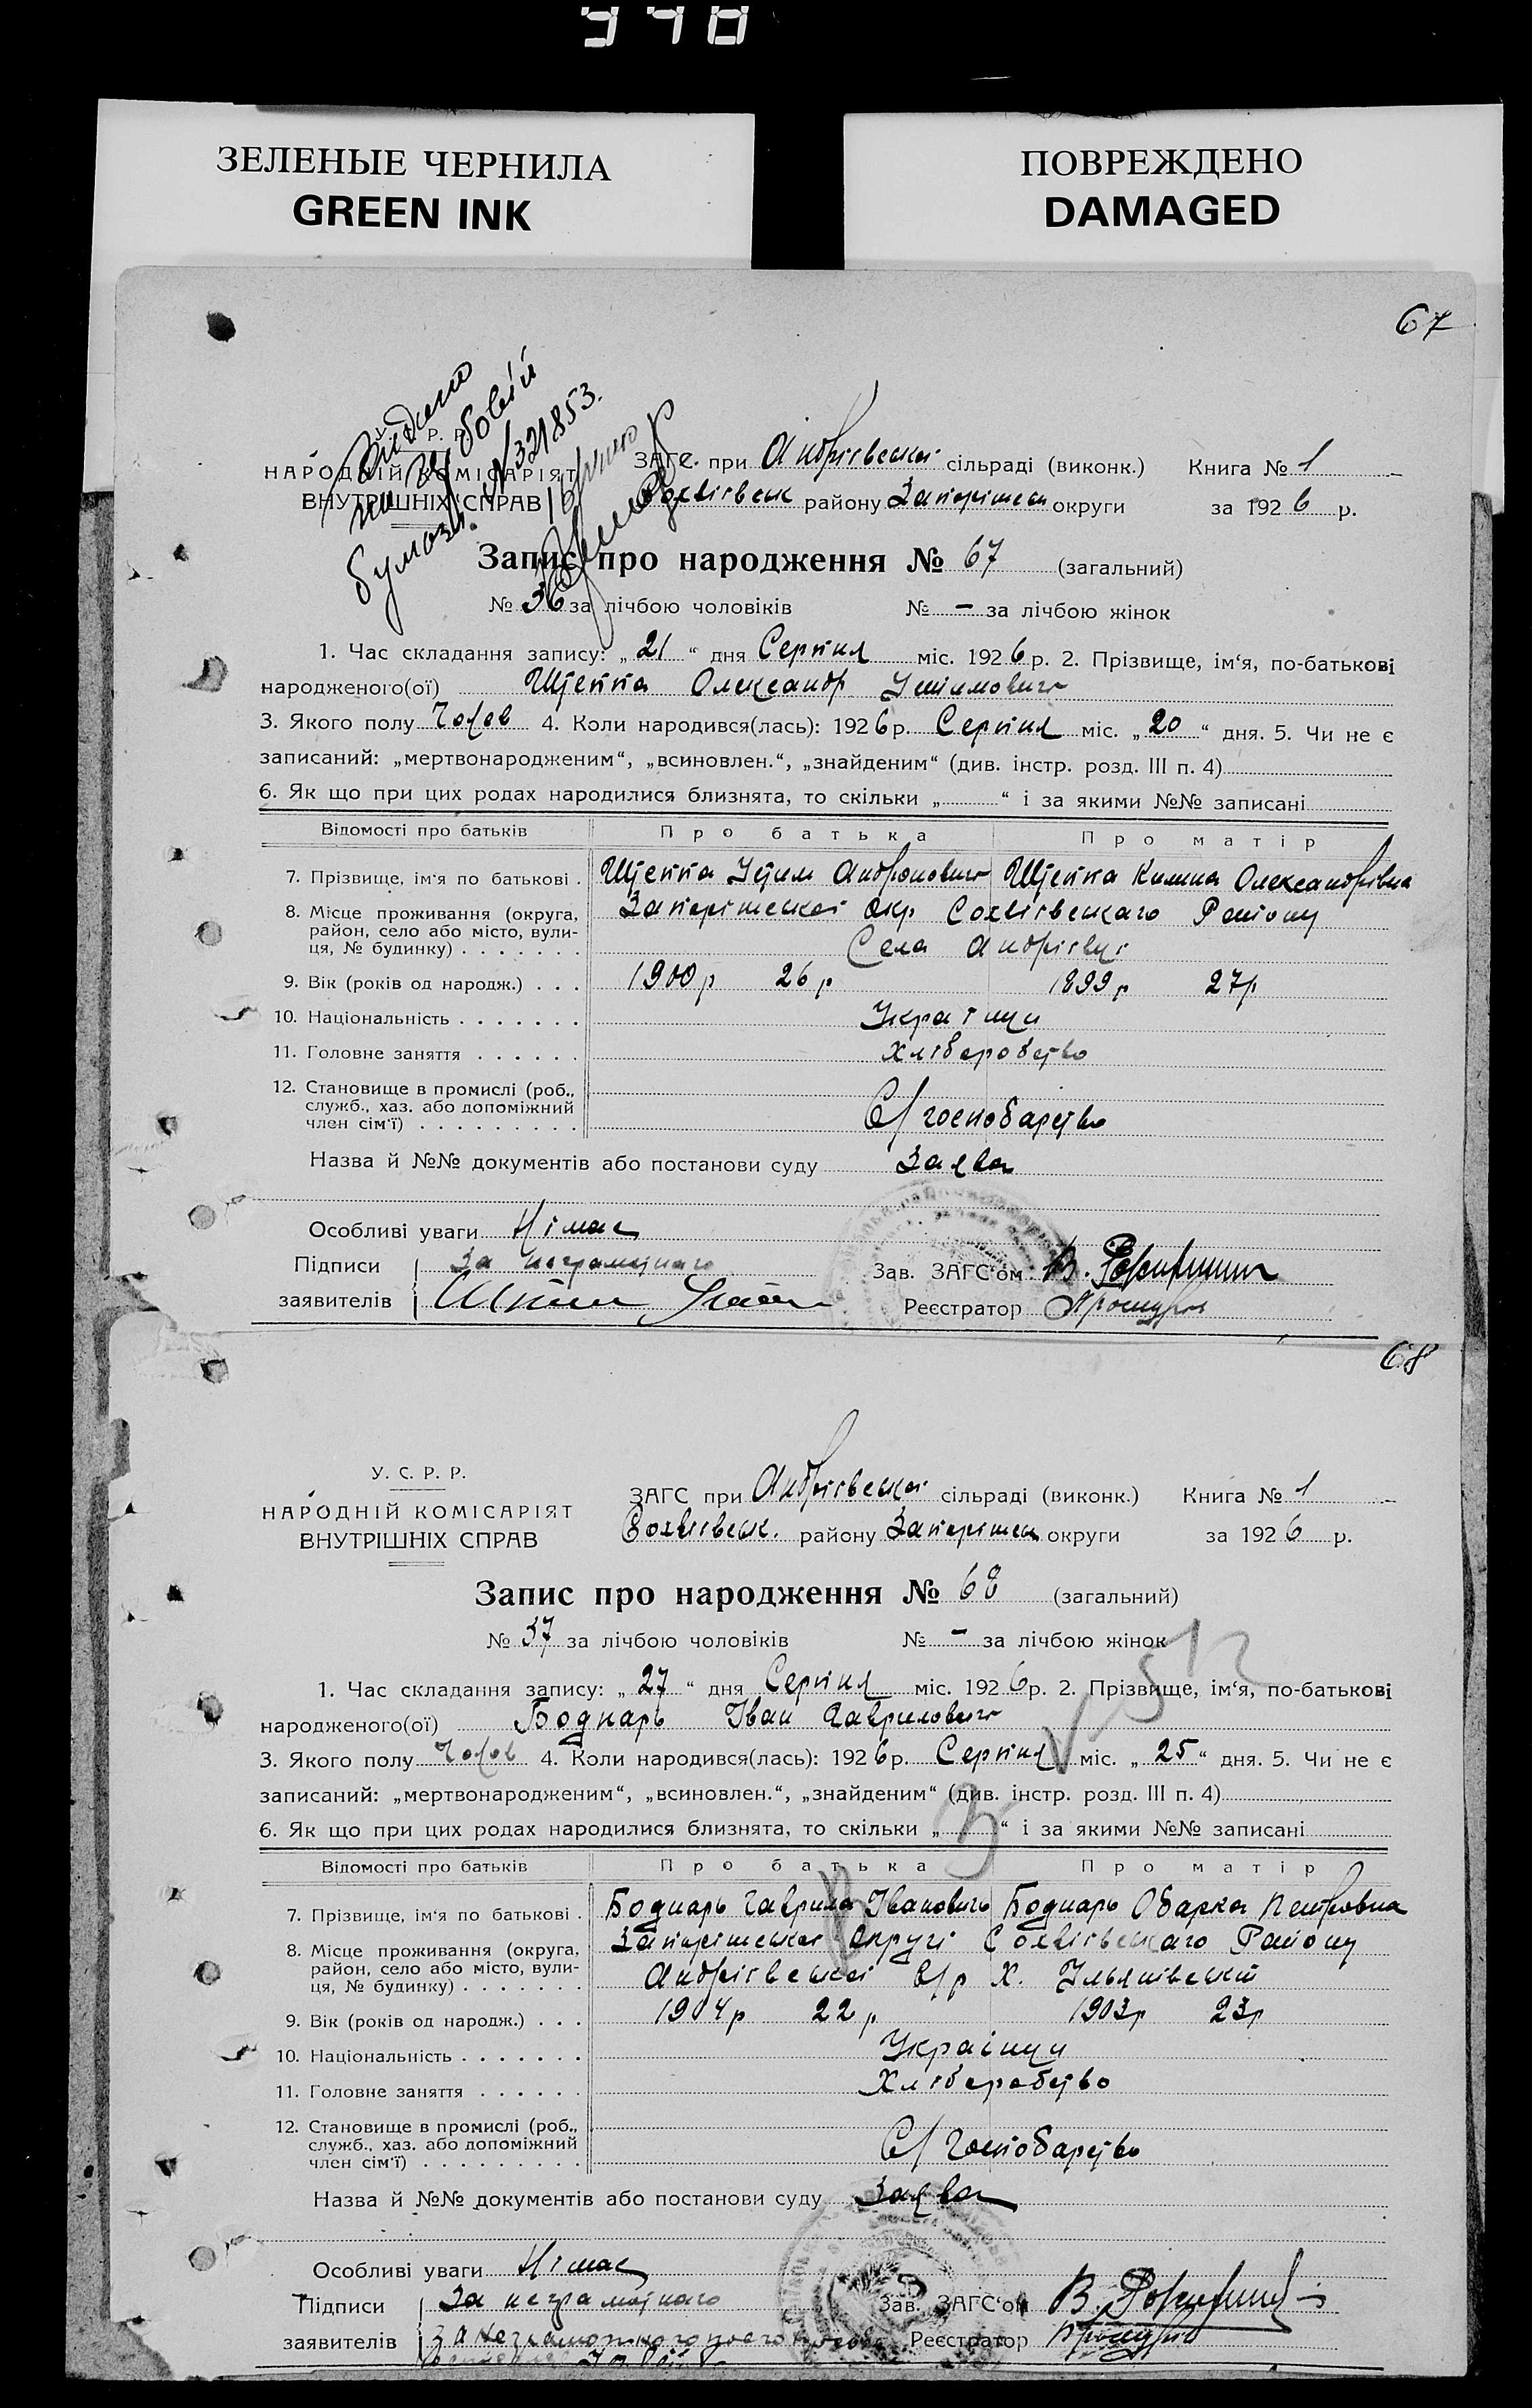 ЗЕЛЕНЫЕ ЧЕРНИЛА
GREEN INK
ПОВРЕЖДЕНО
DAMAGED
67
Р. Р.
НАРОДНІЙ КОМІСАРІЯТ
ВНУТРІШНІХ СПРАВ
№ 321853.
ЗАГС. при Андріівськоі сільраді (виконк.) Книга № 1
району Запоріжськ округи за 1926 р.
Запис про народження № 67 (загальний)
№ 36 за лічбою чоловіків № – за лічбою жінок
1. Час складання запису: „21“ дня Серпня міс. 1926 р. 2. Прізвище, ім‘я, по-батькові
народженого(ої) Щепка Олександр
3. Якого полу Чолов 4. Коли народився(лась): 1926 р. Серпня міс. „20“ дня. 5. Чи не є
записаний: „мертвонародженим“, „всиновлен.“, „знайденим“ (див. інстр. розд. III п. 4)
6. Як що при цих родах народилися близнята, то скільки „ “ і за якими №№ записані
Відомості про батьків Про батька Про матір
7. Прізвище, ім‘я по батькові . Щепка Андронович Щепка Килина Олександрівна
8. Місце проживання (округа, Запоріжськоі окр Району
район, село або місто, вули-
ця, № будинку) . . . . . . . Села Андріівці
9. Вік (років од народж.) . . . 1900 р 26 р 1899 р 27 р
10. Національність . . . . . . . Украінці
11. Головне заняття . . . . . . Хліборобство
12. Становище в промислі (роб.,
служб., хаз. або допоміжний
член сім‘ї) . . . . . . . . . С/господарство
Назва й №№ документів або постанови суду Заява
Особливі уваги Німає
Підписи За неграмотного
заявителів
Зав. ЗАГС‘ом В.
Реєстратор
68
У. С. Р. Р.
НАРОДНІЙ КОМІСАРІЯТ
ВНУТРІШНІХ СПРАВ
ЗАГС при Андріівськоі сільраді (виконк.) Книга № 1
району Запоріжськ округи за 1926 р.
Запис про народження № 68 (загальний)
№ 37 за лічбою чоловіків № – за лічбою жінок
1. Час складання запису: „27“ дня Серпня міс. 1926 р. 2. Прізвище, ім‘я, по-батькові
народженого(ої) Боднарь Іван Гаврилович
3. Якого полу Чолов 4. Коли народився(лась): 1926 р. Серпня міс. „25“ дня. 5. Чи не є
записаний: „мертвонародженим“, „всиновлен.“, „знайденим“ (див. інстр. розд. III п. 4)
6. Як що при цих родах народилися близнята, то скільки „ “ і за якими №№ записані
Відомості про батьків Про батька Про матір
7. Прізвище, ім‘я по батькові . Боднарь Гаврила Іванович Боднарь Одарка Петровна
8. Місце проживання (округа, Запоріжськоі Округі Району
район, село або місто, вули-
ця, № будинку) . . . . . . . Андріівськоі с/р х.
9. Вік (років од народж.) . . . 1904 р 22 р 1903 р 23 р
10. Національність . . . . . . . Украінци
11. Головне заняття . . . . . . Хліборобство
12. Становище в промислі (роб.,
служб., хаз. або допоміжний
член сім‘ї) . . . . . . . . . С/Господарство
Назва й №№ документів або постанови суду Заява
Особливі уваги Німає
Підписи За неграмотного
заявителів
Зав. ЗАГС‘ом В.
Реєстратор